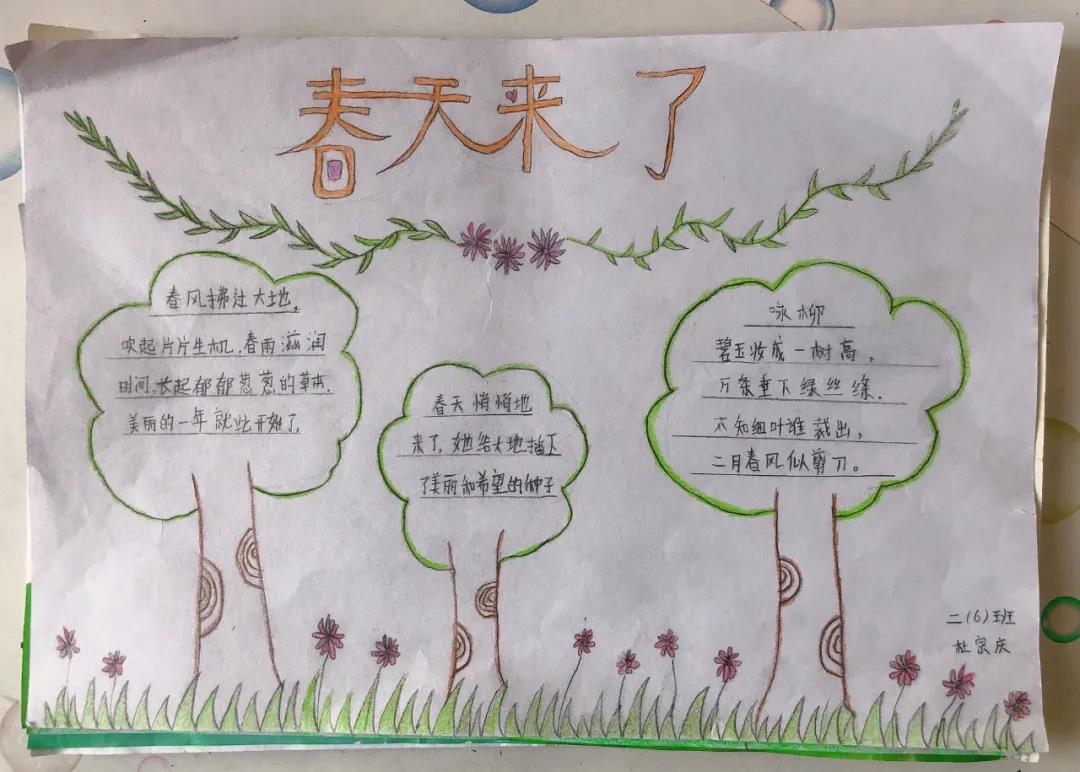 春天来了
春风拂过大地,
吹起片片生机,春雨滋润
田间,长起郁郁葱葱的草木.
美丽的一年就此开始了.
春天悄悄地
来了,她给大地播下
了美丽和希望的种子
咏柳
碧玉妆成一树高,
万条垂下绿丝绦.
不知细叶谁裁出,
二月春风似剪刀。
二(6)班
杜宗庆